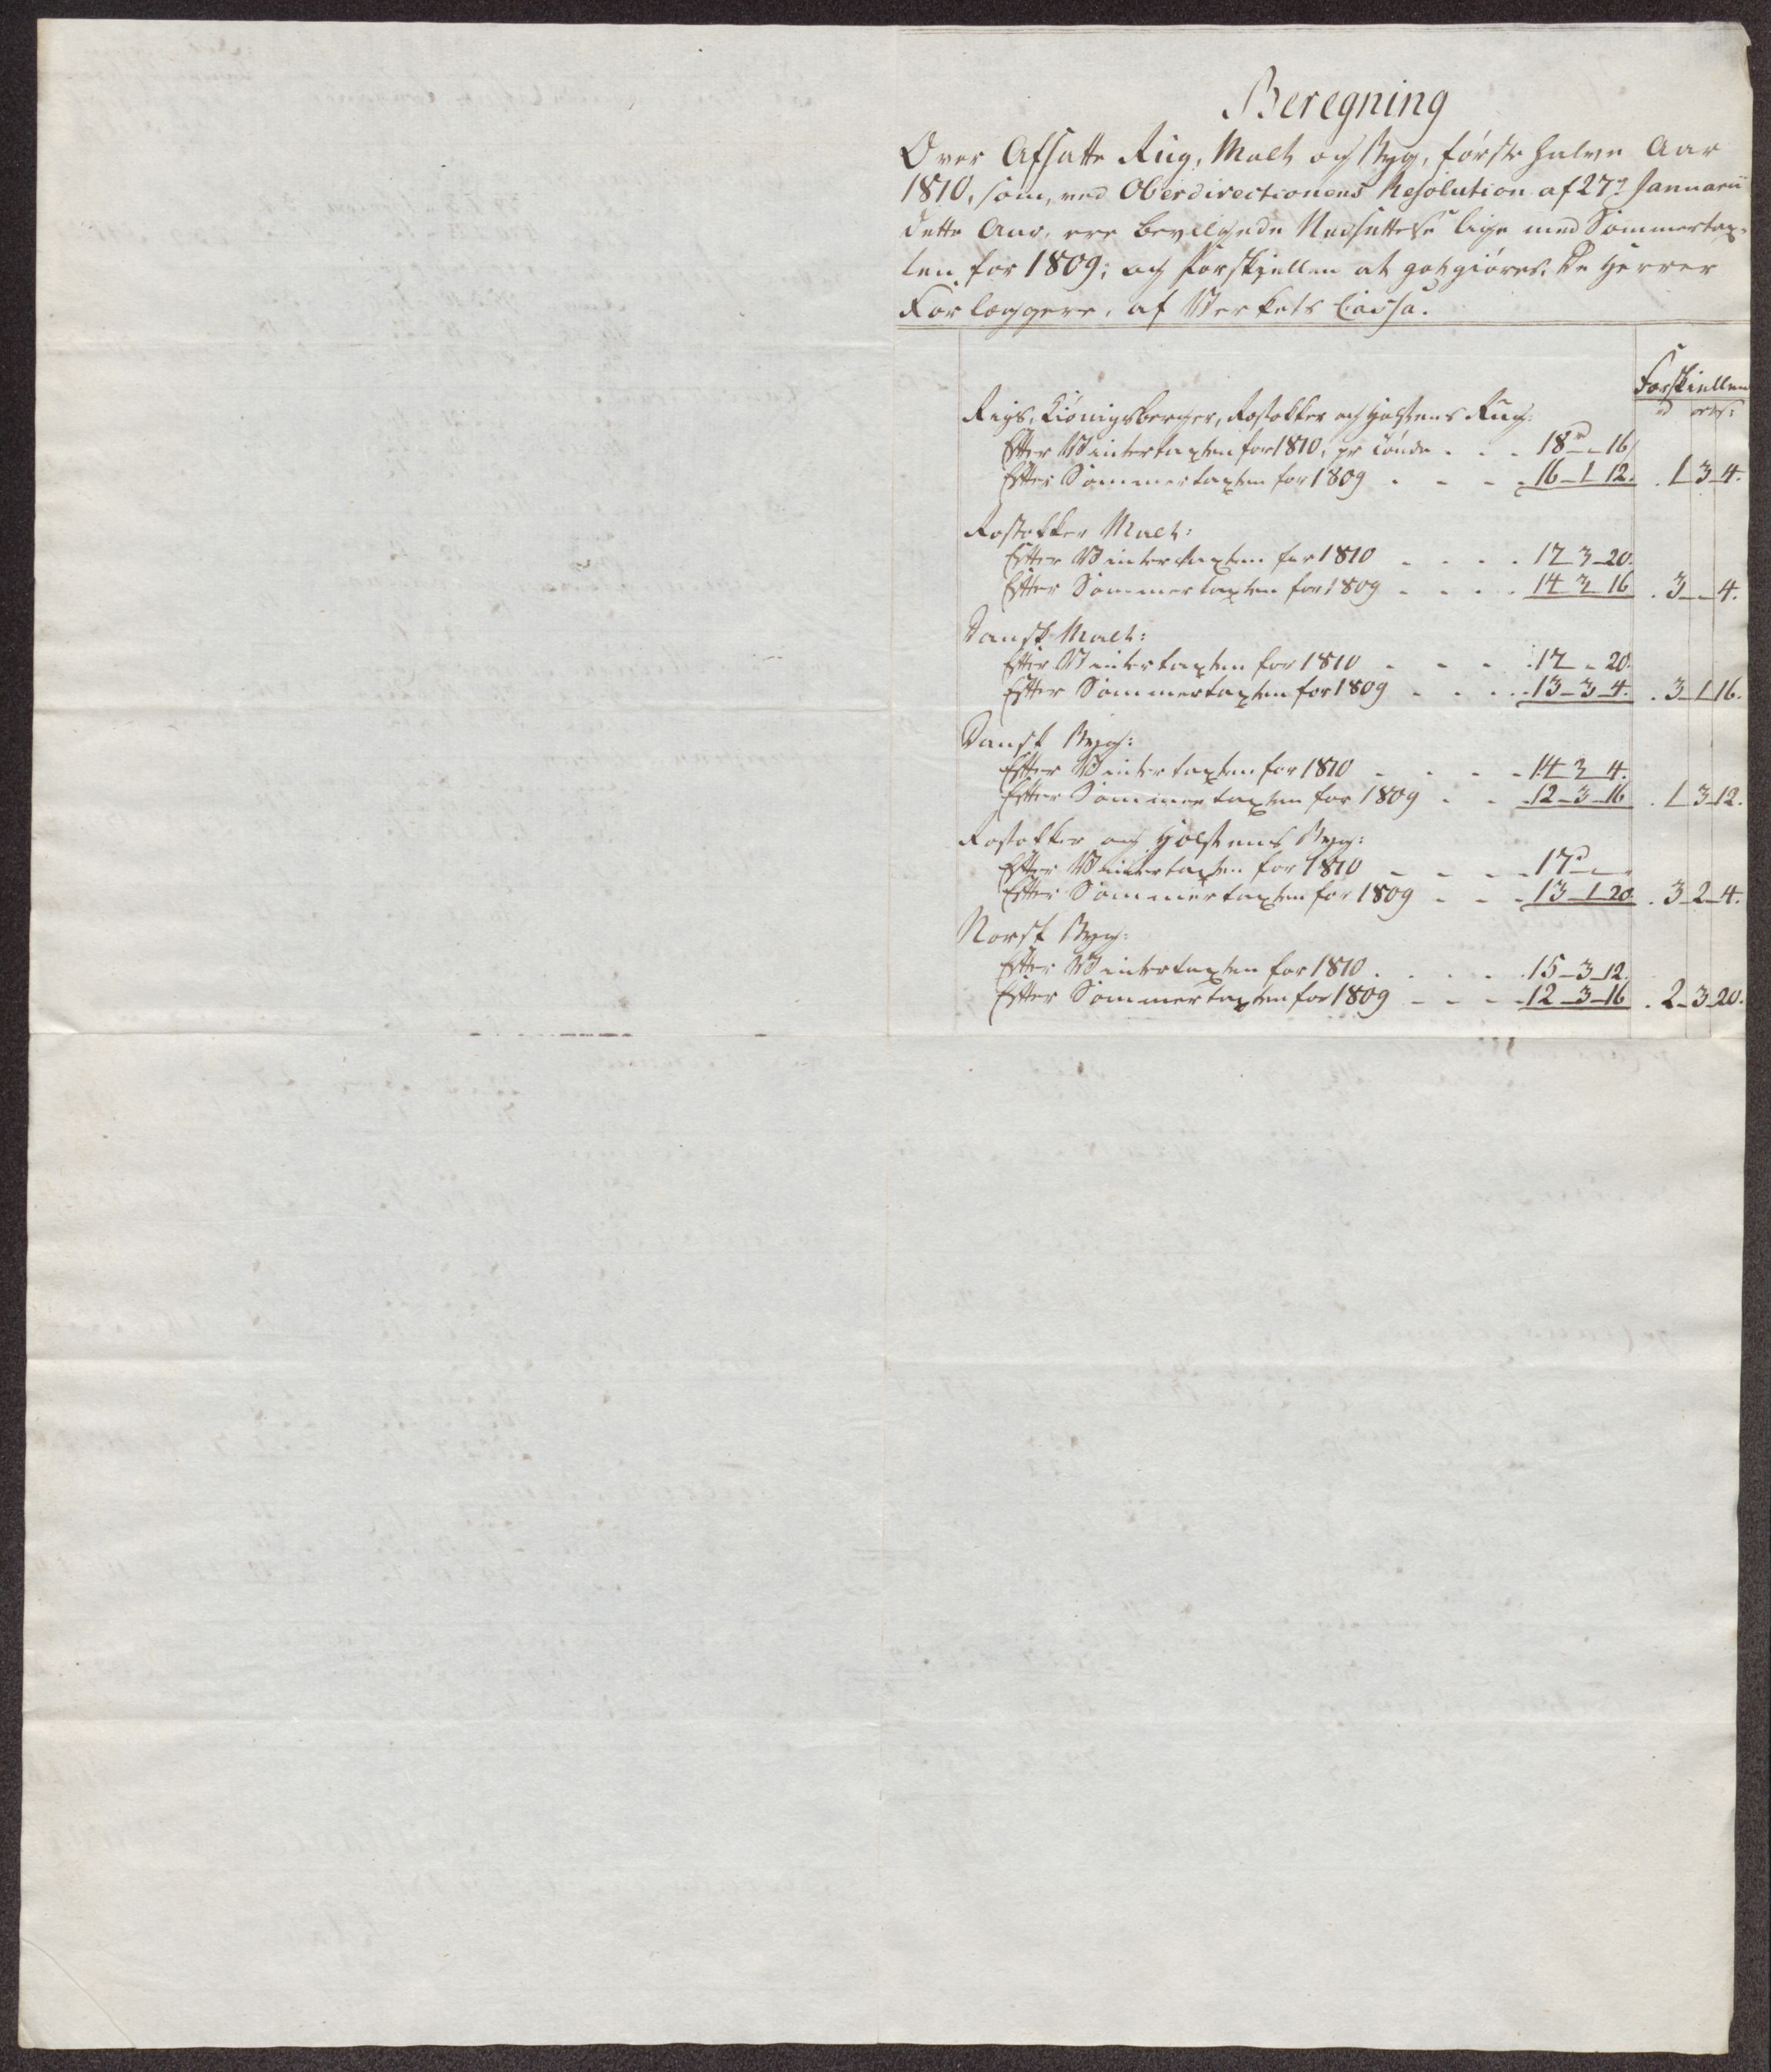 Beregning
Over Afsatte Rug, Malt og Byg, første halve Aar
1810, som, ved Oberdirectionens Resolution af 27de Januarii
dette Aar, ere bevilgede Nedsættelse lige med Sommertax-
ten for 1809; og Forskjellen at godgiøres De Herrer
Forlæggere, af Verkets Cassa.
Forskiellen
rd ort s:
Rigs, Kiönigsberger, Rostokker og Holstens Rug:
Efter Vintertaxten for 1810, pr Tønde . . . 18rd - - 16
Efter Sommertaxten for 1809 . - - - 16 - 1 12. . 1 3 4.
Rostokker Malt:
Efter Vintertaxten for 1810 . . . . 17 3 - 20.
Efter Sommertaxten for 1809 . . . . 14 3 - 16 . 3 - - 4.
Dansk Malt:
Efter Vintertaxten for 1810 - - - . 17 - 20.
Efter Sommertaxten for 1809 . . . . 13 - 3 - 4. . 3 - 1 16.
Dansk Byg:
Efter Vintertaxten for 1810 - . . - 14 3 4.
Efter Sommertaxten for 1809 . - . 12 - 3 - 16 . 1 3 12.
Rostokker og Holstens Byg:
Efter Vintertaxten for 1810 - - - - 17rd - -
Efter Sommertaxten for 1809 - - - 13 - 1 20. . 3 - 2 - 4.
Norsk Byg:
Efter Vintertaxten for 1810 . . . - . 15 - 3 - 12.
Efter Sommertaxten for 1809 - - - - 12 - 3 - 16 . 2 - 3 20.